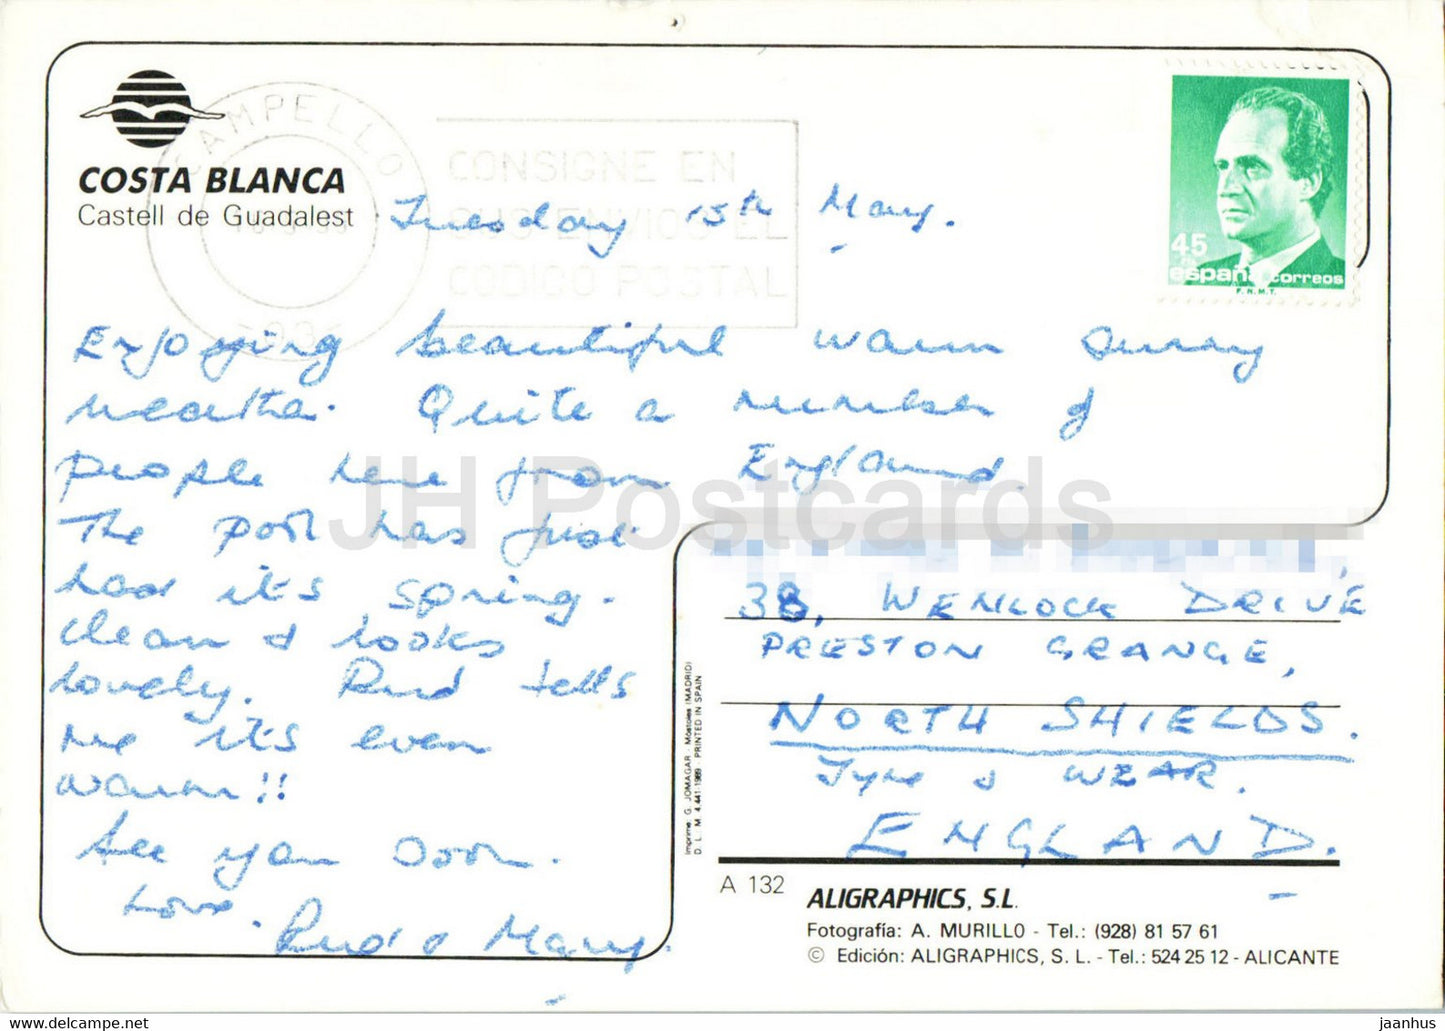 CAMPELLO
CONSIGNE EN
SUS ENVIOS EL
CODIGO POSTAL
COSTA BLANCA
Castell de Guadalest
Tuesday 15th May.
45
españa correos
F.N.M.T.
Enjoying beautiful warm sunny
weather. Quite a number of
people here from England.
The pool has just
had it's spring-
clean & looks
lovely. Rud tells
me it's even
warm!!
See you soon.
Love.
Rud & Mary.
JH Postcards
38, WENLOCK DRIVE
PRESTON GRANGE,
NORTH SHIELDS.
Tyne & WEAR.
ENGLAND.
Imprime: G. JOMAGAR - Móstoles (MADRID)
D. L. M. 4.441-1989 PRINTED IN SPAIN
A 132
ALIGRAPHICS, S.L.
Fotografía: A. MURILLO - Tel.: (928) 81 57 61
© Edición: ALIGRAPHICS, S. L. - Tel.: 524 25 12 - ALICANTE
https://www.delcampe.net
jaanhus